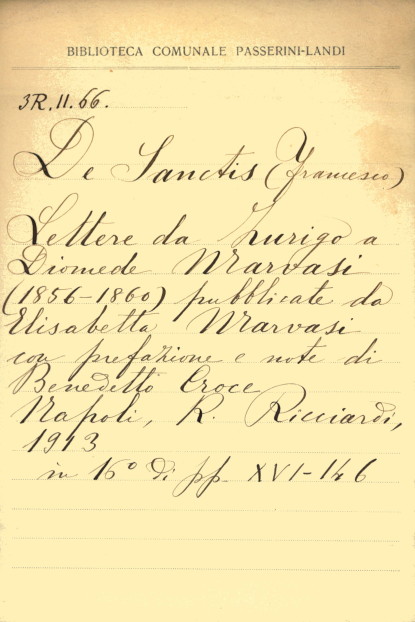 BIBLIOTECA COMUNALE PASSERINI-LANDI
3R.II.66.
De Sanctis (Francesco)
Lettere da Zurigo a
Diomede Marvasi
(1856-1860) pubblicate da
Elisabetta Marvasi
con prefazione e note di
Benedetto Croce
Napoli, R. Ricciardi,
1913
in 16° di pp. XVI-146